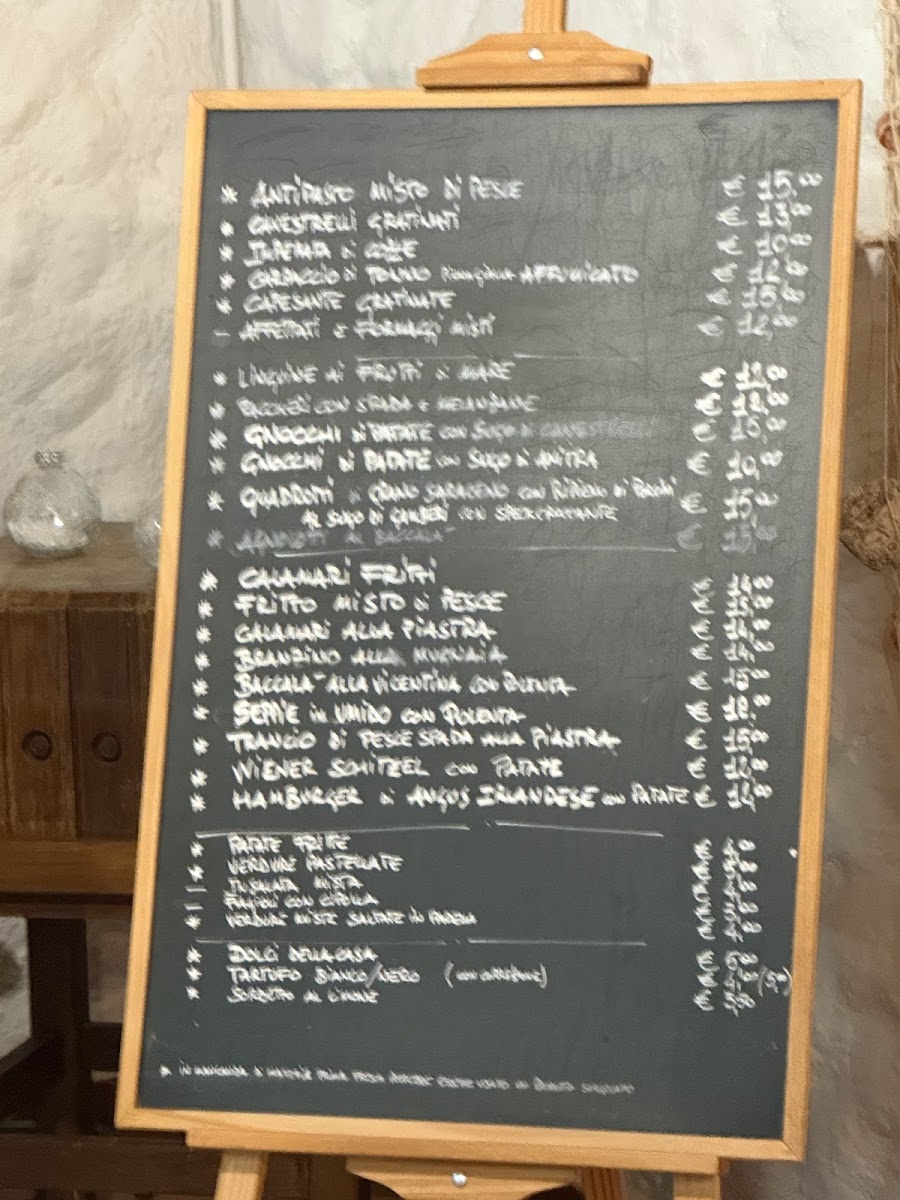 * ANTIPASTO MISTO DI PESCE € 15,00
* CANESTRELLI GRATINATI € 13,00
* IMPEPATA DI COZZE € 10,00
* CARPACCIO DI TONNO PINNA GIALLA AFFUMICATO € 12,00
* CAPESANTE GRATINATE € 15,00
- AFFETTATI E FORMAGGI MISTI € 12,00
* LINGUINE AI FRUTTI DI MARE € 12,00
* PACCHERI CON SPADA E MELANZANE € 12,00
* GNOCCHI DI PATATE CON SUGO DI CANESTRELLI € 15,00
* GNOCCHI DI PATATE CON SUGO DI ANITRA € 10,00
* QUADROTTI DI GRANO SARACENO CON RIPIENO DI PORCINI € 15,00
AL SUGO DI GAMBERI CON SPEK CROCCANTE
* AGNOLOTTI AL BACCALA' € 15,00
* CALAMARI FRITTI € 14,00
* FRITTO MISTO DI PESCE € 15,00
* CALAMARI ALLA PIASTRA € 14,00
* BRANZINO ALLA MUGNAIA € 14,00
* BACCALA' ALLA VICENTINA CON POLENTA € 15,00
* SEPPIE IN UMIDO CON POLENTA € 12,00
* TRANCIO DI PESCE SPADA ALLA PIASTRA € 15,00
* WIENER SCHITZEL CON PATATE € 12,00
* HAMBURGER DI ANGUS IRLANDESE CON PATATE € 14,00
* PATATE FRITTE € 4,00
* VERDURE PASTELLATE €
- INSALATA MISTA € 4,00
- FAGIOLI CON CIPOLLA €
* VERDURE MISTE SALTATE IN PADELLA € 4,00
* DOLCI DELLA CASA € 5,00
* TARTUFO BIANCO/NERO (CON CORREZIONE) € 4,00 (5,00)
* SORBETTO AL LIMONE € 3,50
* IN MANCANZA DI MATERIA PRIMA FRESCA POTREBBE ESSERE USATO UN PRODOTTO SURGELATO